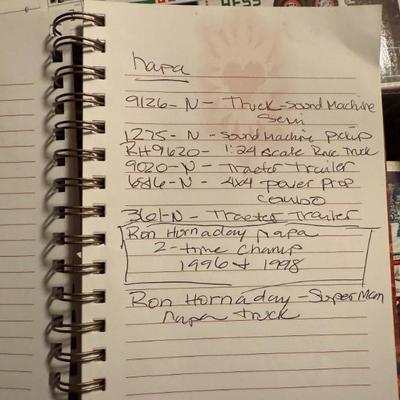 HESS
napa
9126-N- Truck-Sound Machine
Semi
1275-N- Sound Machine pickup
RH9620- 1:24 scale Race Truck
9020-N- Tractor Trailer
6816-N- 4x4 power prop
combo
361-N- Tractor Trailer
Ron Hornaday Napa
2-time Champ
1996 + 1998
Ron Hornaday-Super Man
Napa truck